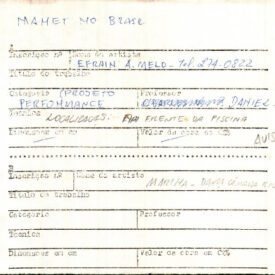 MAMET NO BRASIL
Inscrição nº Nome do artista
EFRAIN A. MELO - Tel. 274-0822
Título do trabalho
Categoria (PROJETO Professor
PERFORMANCE DANIEL
Técnica LOCALIDADES. EM FRENTE DA PISCINA
Dimensões em cm Valor da obra em CR$
Inscrição nº Nome do artista
MARTHA -
Título do trabalho
Categoria Professor
Técnica
Dimensões em cm Valor da obra em CR$